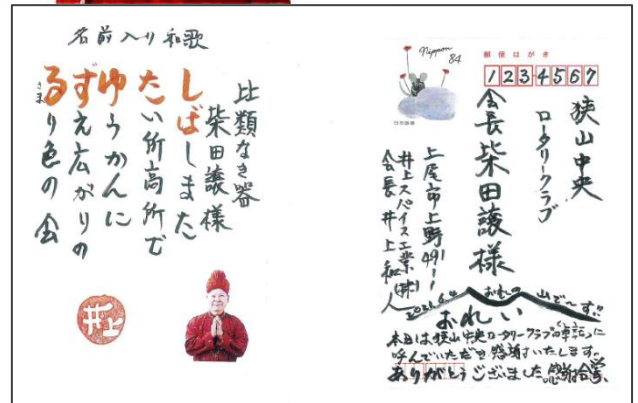 名前入り和歌
比類なき器
柴田譲様
しばしまた
たい所高所で
ゆうかんに
ずえ広がりの
るり色の会
さま
井上
Nippon
84
日本郵便
郵便はがき
1234567
狭山中央
ロータリークラブ
会長柴田譲様
上尾市上野491-1
井上スパイス工業(株)
会長 井上和人
2021.6.4
おれの
山で〜す!!
おれい
本日は狭山中央ロータリークラブの卓話に
呼んでいただき感謝いたします。
ありがとうございました。感謝合掌